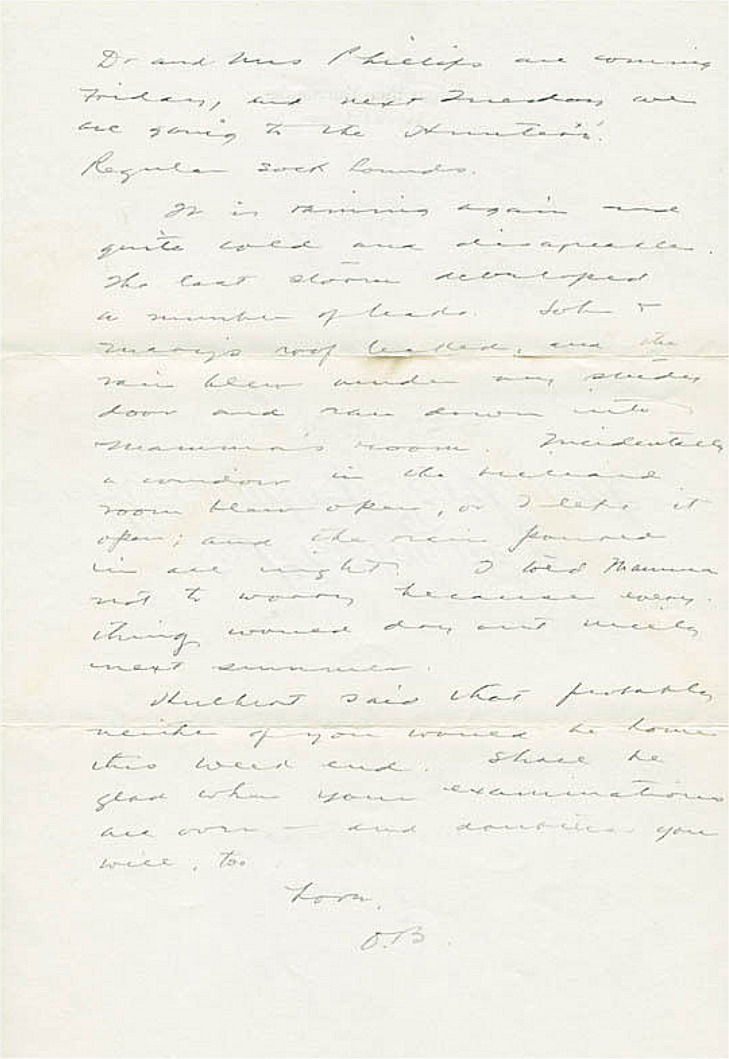 Dr and Mrs Phillips are coming
Friday, and next Tuesday we
are going to the Hunter's.
Regular sock hounds.
It is raining again and
quite cold and disagreeable.
The last storm developed
a number of leaks. John &
Mary's roof leaked, and the
rain blew under my study
door and ran down into
Mamma's room. Incidentally
a window in the billiard
room blew open, or I left it
open; and the rain poured
in all night. I told Mamma
not to worry because every
thing would dry out nicely
next summer.
Hulbert said that probably
neither of you would be home
this week end. Shall be
glad when your examinations
are over – and doubtless you
will, too
Love,
O.B.